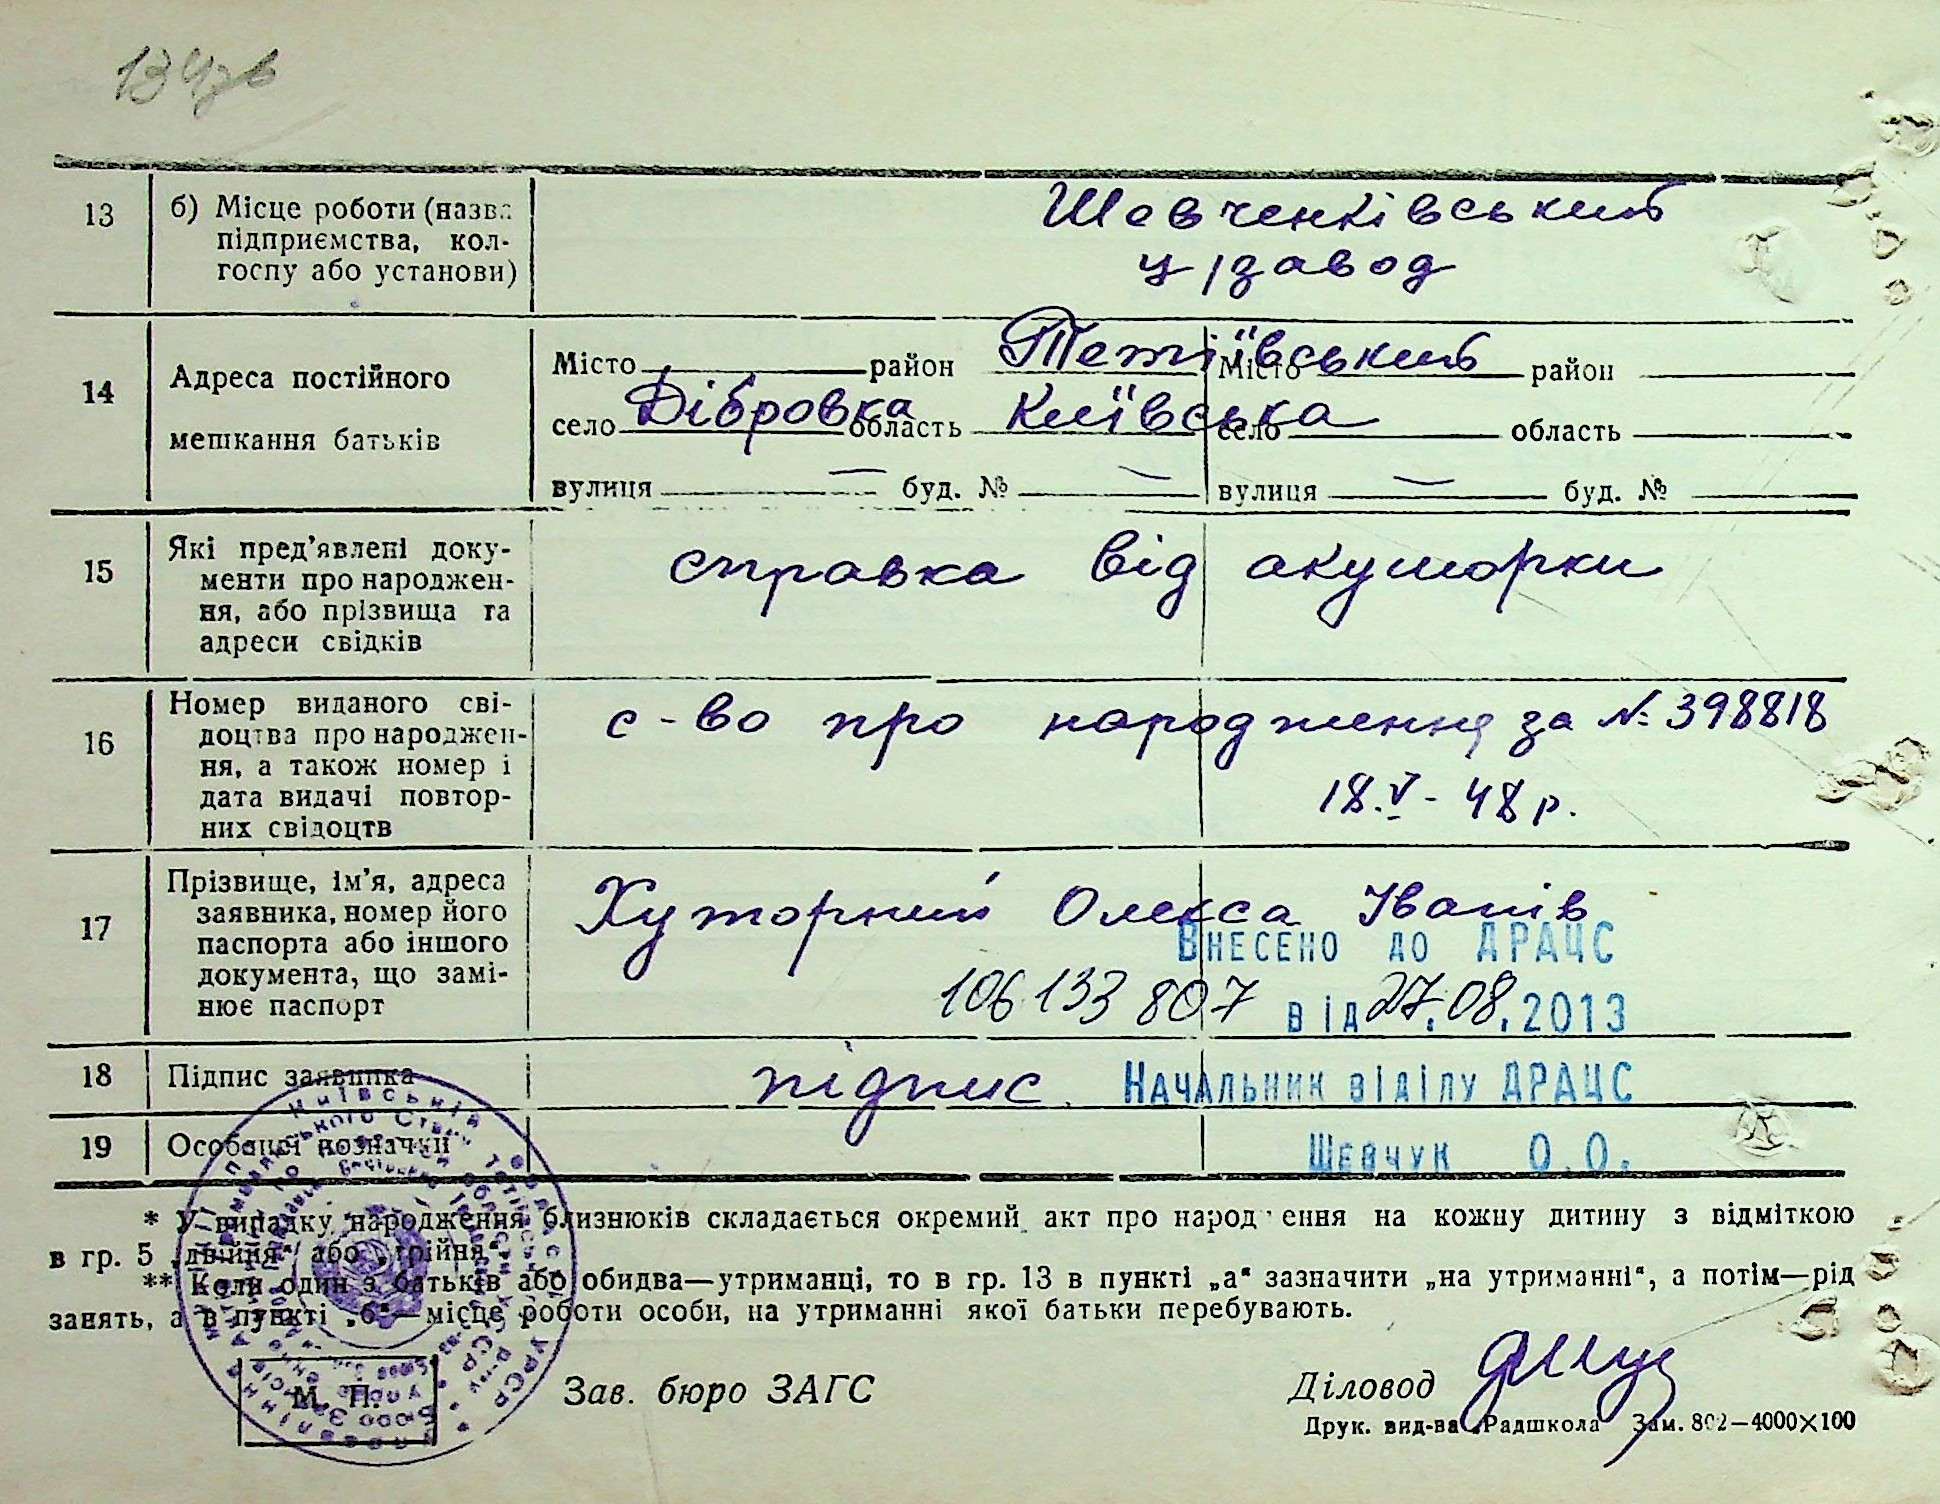 134зв
13 б) Місце роботи (назва
підприємства, кол-
госпу або установи)
Шевченківський
ц/завод
14 Адреса постійного
мешкання батьків
Місто район Тетіївський Місто район
село Дібровка область Київська село область
вулиця — буд. № — вулиця — буд. №
15 Які пред'явлені доку-
менти про народжен-
ня, або прізвища та
адреси свідків
справка від акушорки
16 Номер виданого сві-
доцтва про народжен-
ня, а також номер і
дата видачі повтор-
них свідоцтв
с-во про народження за № 398818
18.V-48 р.
17 Прізвище, ім'я, адреса
заявника, номер його
паспорта або іншого
документа, що замі-
нює паспорт
Хуторний Олекса Іванів
Внесено до ДРАЦС
106133807 від 27.08.2013
18 Підпис заявника
підпис
Начальник відділу ДРАЦС
19 Особливі позначки
Шевчук О.О.
* У випадку народження близнюків складається окремий акт про народження на кожну дитину з відміткою
в гр. 5 „двійня“ або „трійня“.
** Коли один з батьків або обидва—утриманці, то в гр. 13 в пункті „а“ зазначити „на утриманні“, а потім—рід
занять, а в пункті „б“—місце роботи особи, на утриманні якої батьки перебувають.
М. П.
Зав. бюро ЗАГС
Діловод
Друк. вид-ва „Радшкола“ Зам. 802—4000×100